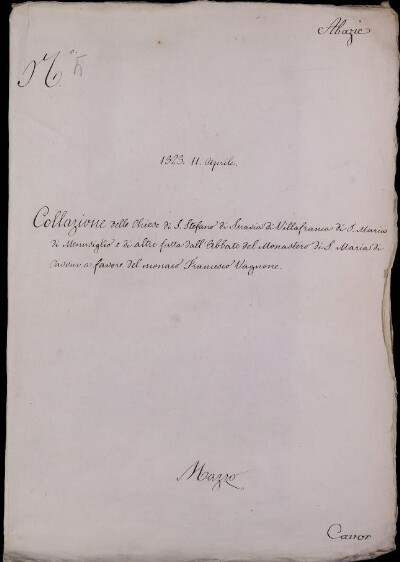 Abazie
N.° 
1323. 11. Aprile.
Collazione delle Chiese di S. Stefano di di Villafranca di S. Maria
di Monasiglio e di altre fatta dall'Abbate del Monastero di S. Maria di
Cavour a favore del monaco Francesco Vagnone.
Mazzo
Cavor